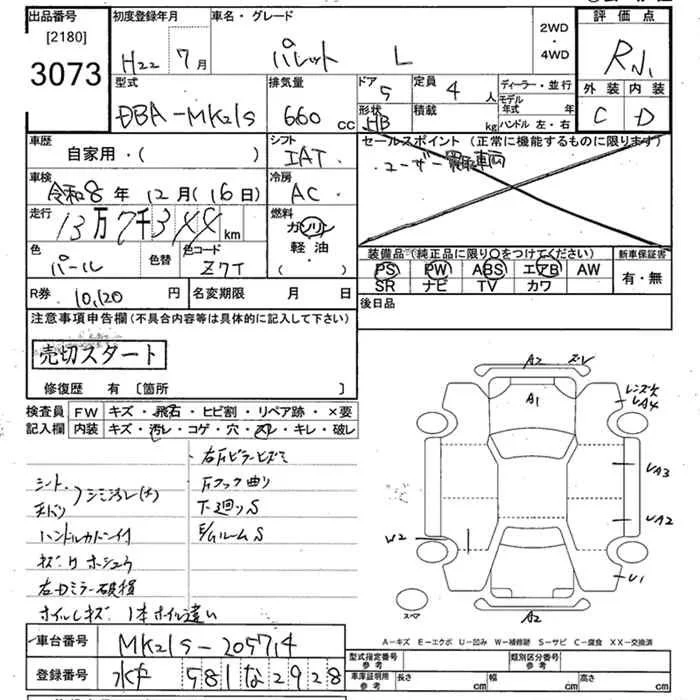 出品番号
[2180]
3073
初度登録年月
H22年 7月
車名・グレード
パレット L
2WD
・
4WD
評価点
R
外装 内装
C D
型式
DBA-MK21S
排気量
660 CC
ドア
5
形状
HB
定員
4 人
積載
kg
ディーラー・並行
モデル年式 年
ハンドル 左・右
車歴
自家用・( )
シフト
IAT
セールスポイント (正常に機能するものに限ります)
・ユーザー買取車両
車検
令和8年 12月 (16日)
冷房
AC
走行
13万7千344km
燃料
ガソリン
軽油
・( )
色
パール
色替
色コード
Z7T
装備品(純正品に限り〇をつけてください)
PS PW ABS エアB AW
SR ナビ TV カワ
新車保証書
有・無
R券 10,120 円
名変期限 月 日
後日品
注意事項申告欄(不具合内容等は具体的に記入して下さい)
売切スタート
修復歴 有 [箇所 ]
検査員
記入欄
FW キズ・飛石・ヒビ割・リペア跡・×要
内装 キズ・汚レ・コゲ・穴・スレ・キレ・破レ
シート
天バリ
シミ汚レ(大)
ハンドルカバー付
右Dミラー破損
ホイルキズ 1本ホイル違い
右Fピラーヒズミ
Fフック曲り
下廻りS
E/ルームS
A2 ズレ
A1
レンズ欠
UA4
UA3
UA2
U1
W2
A2
スペア
A-キズ E-エクボ U-凹み W-補修跡 S-サビ C-腐食 XX-交換済
車台番号 MK21S-205714
登録番号 水戸 581 な 2928
型式指定番号
参考
類別区分番号
参考
車庫証明用
参考
長さ cm
幅 cm
高さ cm